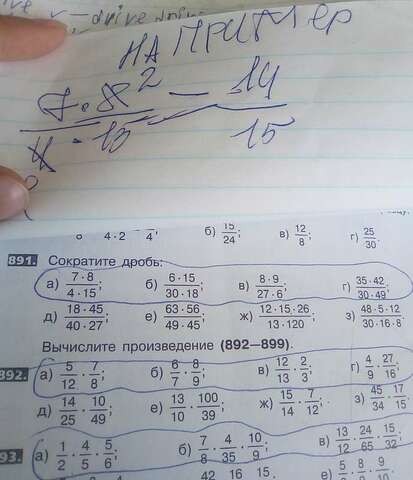 НАПРИМЕР
7·8 2 — 14
4 · 15 15
4·2 4; б) 15/24; в) 12/8; г) 25/30.
891. Сократите дробь:
а) 7·8/4·15; б) 6·15/30·18; в) 8·9/27·6; г) 35·42/30·49;
д) 18·45/40·27; е) 63·56/49·45; ж) 12·15·26/13·120; з) 48·5·12/30·16·8;
Вычислите произведение (892—899).
892. а) 5/12 · 7/8; б) 6/7 · 8/9; в) 12/13 · 2/3; г) 4/9 · 27/16;
д) 14/25 · 10/49; е) 13/10 · 100/39; ж) 15/14 · 7/12; з) 45/34 · 17/15.
93. а) 1/2 · 4/5 · 5/6; б) 7/8 · 4/35 · 10/9; в) 13/24 · 24/65 · 15/32;
42 16 15 е) 5 8 9